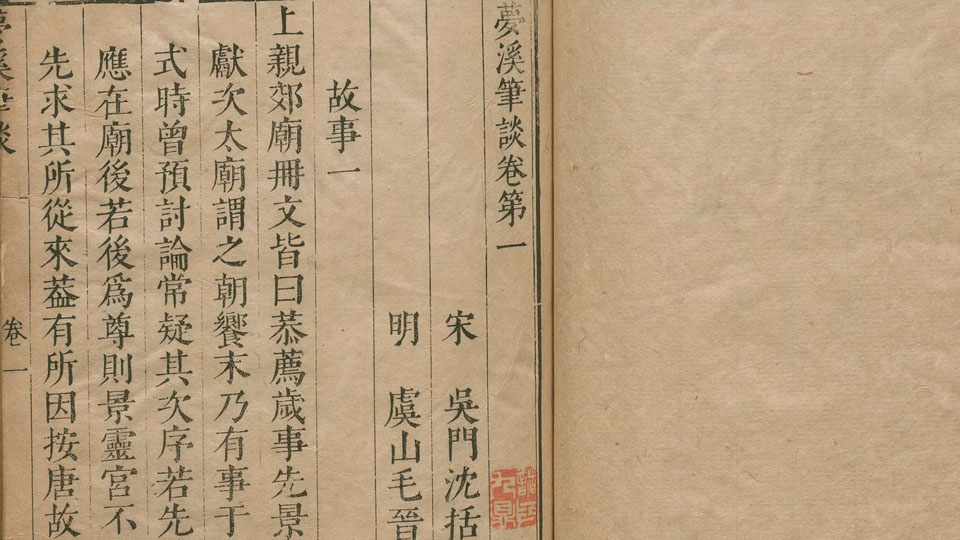 夢溪筆談卷第一
宋 吳門沈括
明 虞山毛晉
故事一
上親郊廟冊文皆曰恭薦歲事先景
獻次太廟謂之朝饗末乃有事于
式時曾預討論常疑其次序若先
應在廟後若後爲尊則景靈宮不
先求其所從來葢有所因按唐故
夢溪筆談
卷一